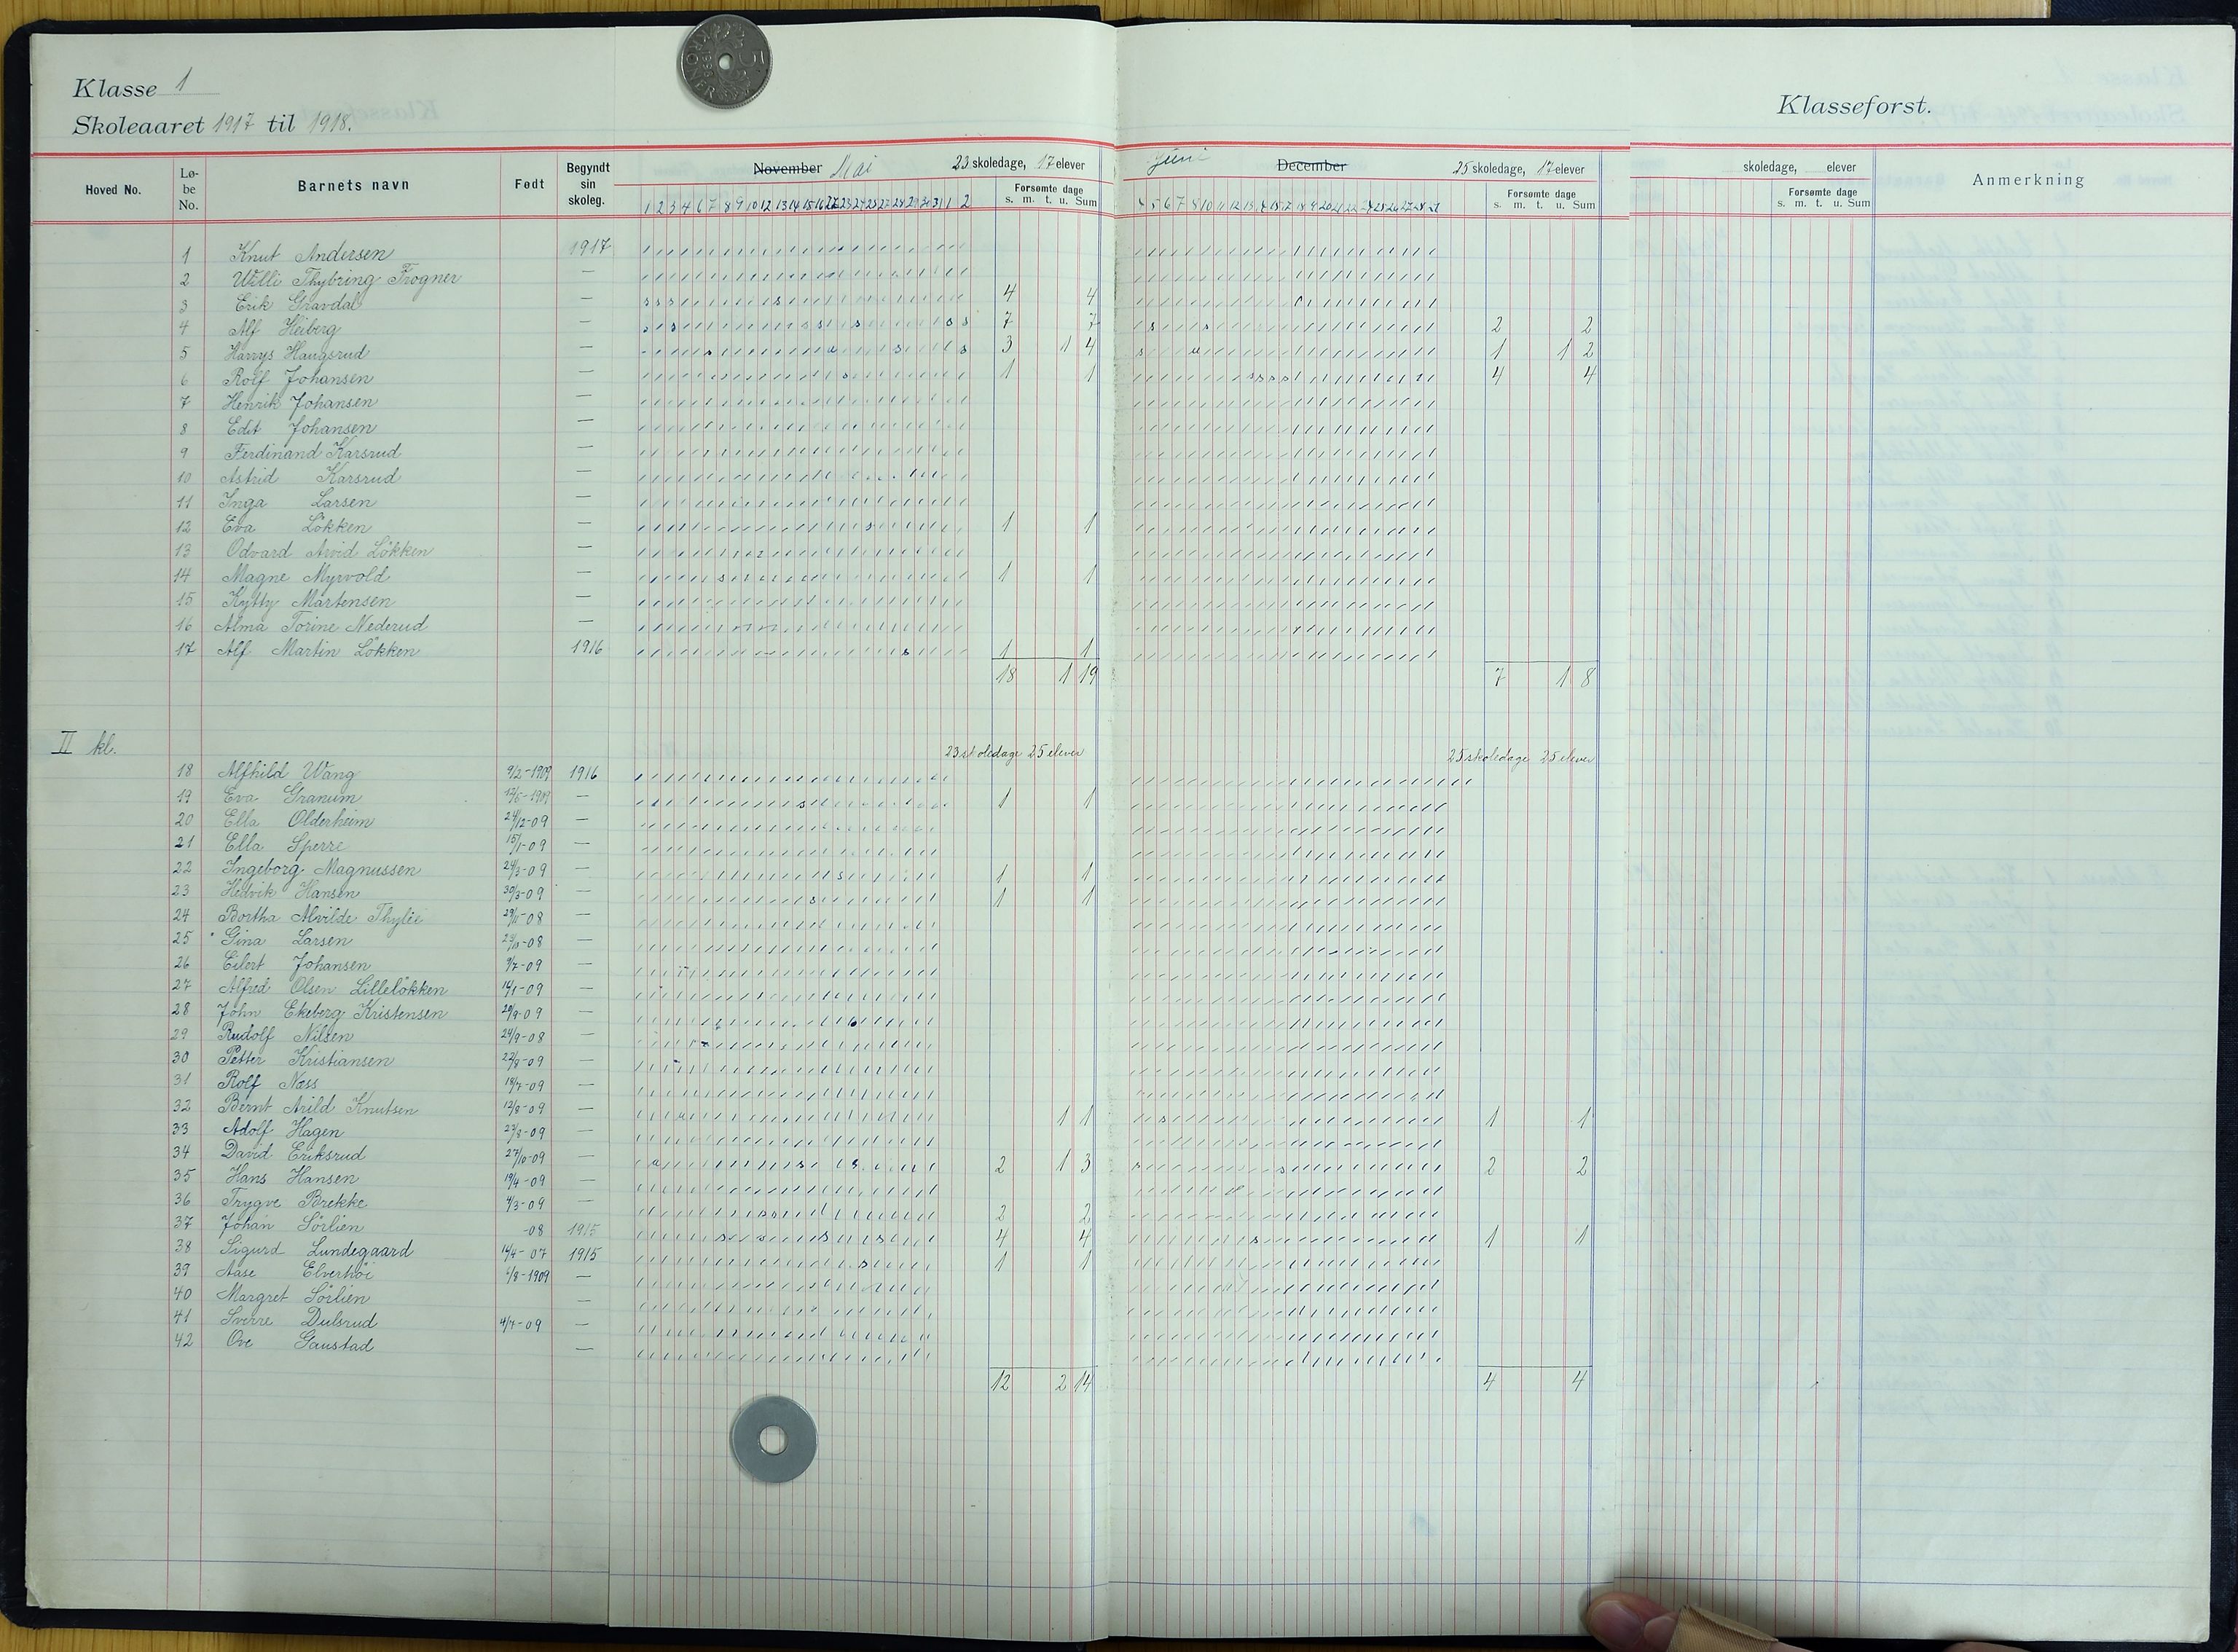 5 KRONER 1998
Klasse 1
Skoleaaret 1917 til 1918.
Klasseforst.
Hoved No. Lø-be No. Barnets navn Født Begyndt sin skoleg. November Mai 23 skoledage, 17 elever Juni December 25 skoledage, 17 elever skoledage, elever Anmerkning
Forsømte dage Forsømte dage Forsømte dage
s. m. t. u. Sum s. m. t. u. Sum s. m. t. u. Sum
1 Knut Andersen 1917
2 Willi Thybring Frogner —
3 Erik Gravdal — 4 4
4 Alf Heiberg — 7 7 2 2
5 Harrys Haugsrud — 3 1 4 1 1 2
6 Rolf Johansen — 1 1 4 4
7 Henrik Johansen —
8 Edit Johansen —
9 Ferdinand Karsrud —
10 Astrid Karsrud —
11 Inga Larsen —
12 Eva Løkken — 1 1
13 Odvard Arvid Løkken —
14 Magne Myrvold — 1 1
15 Kytty Martensen —
16 Alma Torine Nederud —
17 Alf Martin Løkken 1916 1 1
18 1 19 7 1 8
II kl. 23 skoledage 25 elever 25 skoledage 25 elever
18 Alfhild Wang 9/2-1909 1916
19 Eva Granum 12/5-1909 — 1 1
20 Ella Olderheim 24/12-09 —
21 Ella Sperre 15/1-09 —
22 Ingeborg Magnussen 24/3-09 — 1 1
23 Hedvik Hansen 30/3-09 — 1 1
24 Bortha Alvilde Thylie 29/11-08 —
25 Gina Larsen -08 —
26 Eilert Johansen 9/7-09 —
27 Alfred Olsen Lilleløkken 14/1-09 —
28 John Ekeberg Kristensen 29/9-09 —
29 Rudolf Nilsen 24/9-08 —
30 Petter Kristiansen 22/8-09 —
31 Rolf Næss 18/7-09 —
32 Bernt Arild Knutsen 12/8-09 — 1 1 1 1
33 Adolf Hagen 27/8-09 —
34 David Eriksrud 27/10-09 — 2 1 3 2 2
35 Hans Hansen 19/4-09 —
36 Trygve Brekke 4/3-09 — 2 2
37 Johan Sörlien -08 1915 4 4 1 1
38 Sigurd Lundegaard 14/4-07 1915 1 1
39 Aase Elverhöi 6/8-1909 —
40 Margret Sörlien —
41 Sverre Dulsrud 4/7-09 —
42 Ove Gaustad —
12 2 14 4 4